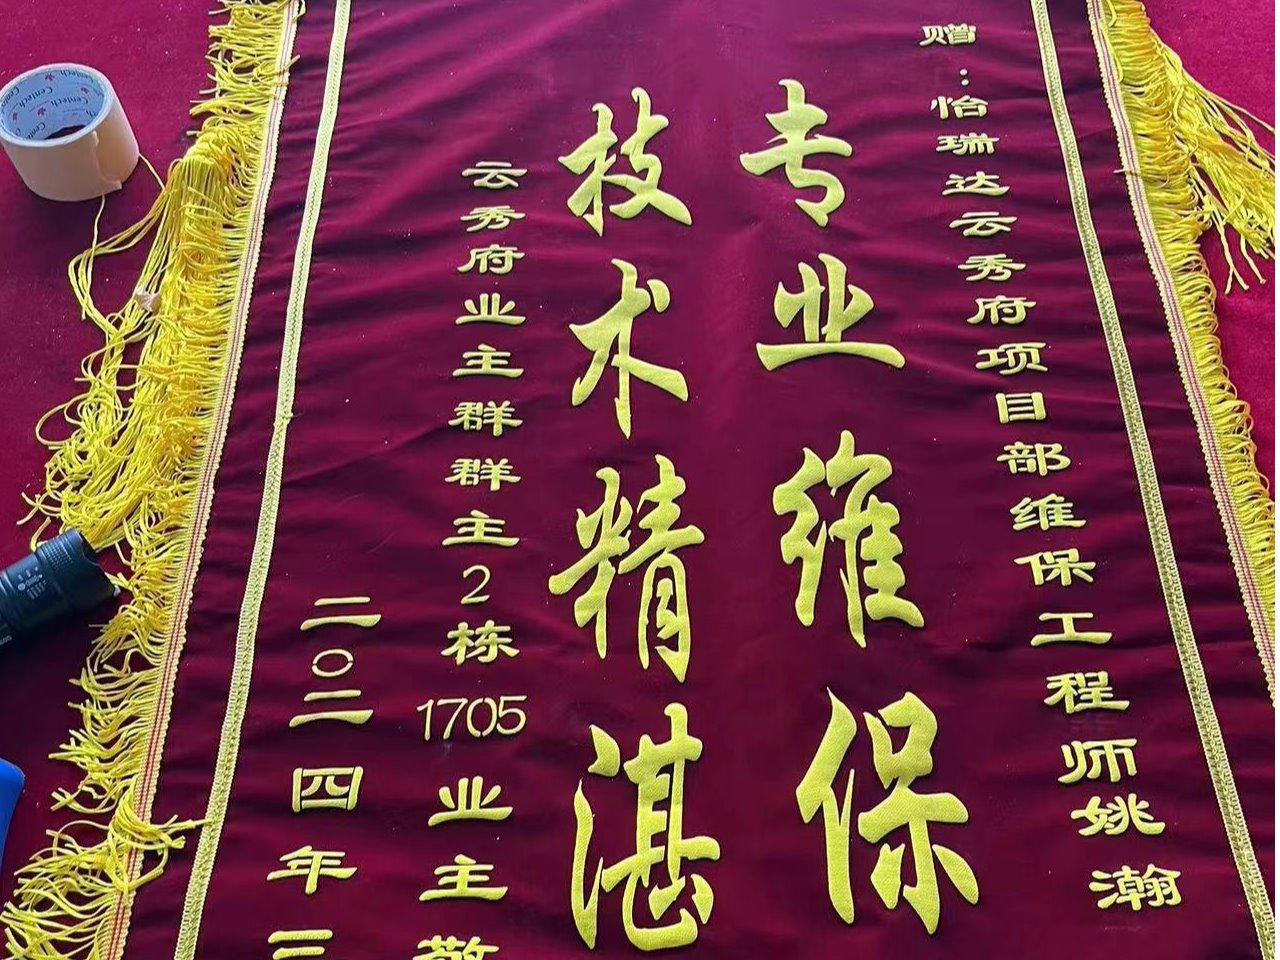 赠：怡瑞达云秀府项目部维保工程师姚瀚
专业维保
技术精湛
云秀府业主群群主2栋1705业主敬
二〇二四年三
Centech